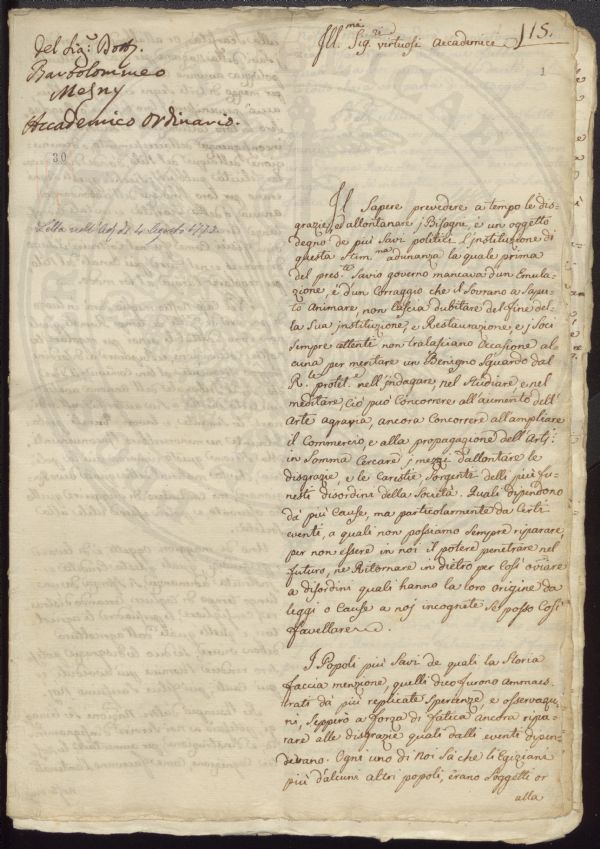 Del Sig.r Dott.
Bartolommeo
Mesny
Accademico Ordinario.
30
Letta nell'Ad. de 4 Agosto 1773.
Ill.mi Sig.ri virtuosi Accademici
115.
1
Il Sapere prevedere a tempo le dis-
grazie, ed allontanare j Bisogni, è un oggetto
degno de più Savi politici. L'instituzione di
questa Stim.ma adunanza la quale prima
del pres.te Savio governo mancava d'un Emula-
zione, e d'un Corraggio che il Sovrano a Sapu-
to Animare, non lascia dubitare del fine del-
la Sua instituzione, e Restaurazione, e j Soci
sempre attenti non tralasciano Occasione al-
cuna per meritare un Benegno Sguardo dal
R.le protet.e nell'indagare, nel Studiare e nel
meditare, ciò può Concorrere all'aumento dell'
Arte agraria, ancora Concorrere all'ampliare
il Commercio, e alla propagazione dell'Arti:
in Somma Cercare j mezzi d'allontare le
disgrazie, e le Carestie, Sorgenti delli più fu-
nesti disordini della Società. Quali dipendono
da più Cause, ma particolarmente da Certi
eventi, a quali non possiamo sempre riparare,
per non essere in noi il potere penetrare nel
futuro, ne Ritornare in dietro per Così oviare
a disordini quali hanno la loro origine da
leggi o Cause a noj incognete se posso Così
favellare.
I Popoli più Savi de quali la Storia
faccia menzione, quelli dico furono Ammaes-
trati da più replicate Sperienze, e osservazio-
ni, seppero a forza di fatica ancora ripa-
rare alle disgrazie quali dalli eventi dipen-
devano. Ogni uno di Noi Sa che li Egiziani
più d'alcuni altri popoli, erano Soggetti or
alla